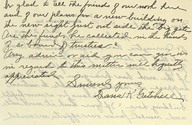 be glad to tell the friends of our work here
and of our plans for a new building on
the new light just out side of the gate
Are this funds be collected in the
of a Board of Trustees?
Any advice that you can give us
in regard to this matter will be greatly
appreciated
Sincerely yours
Dana K. Getchell